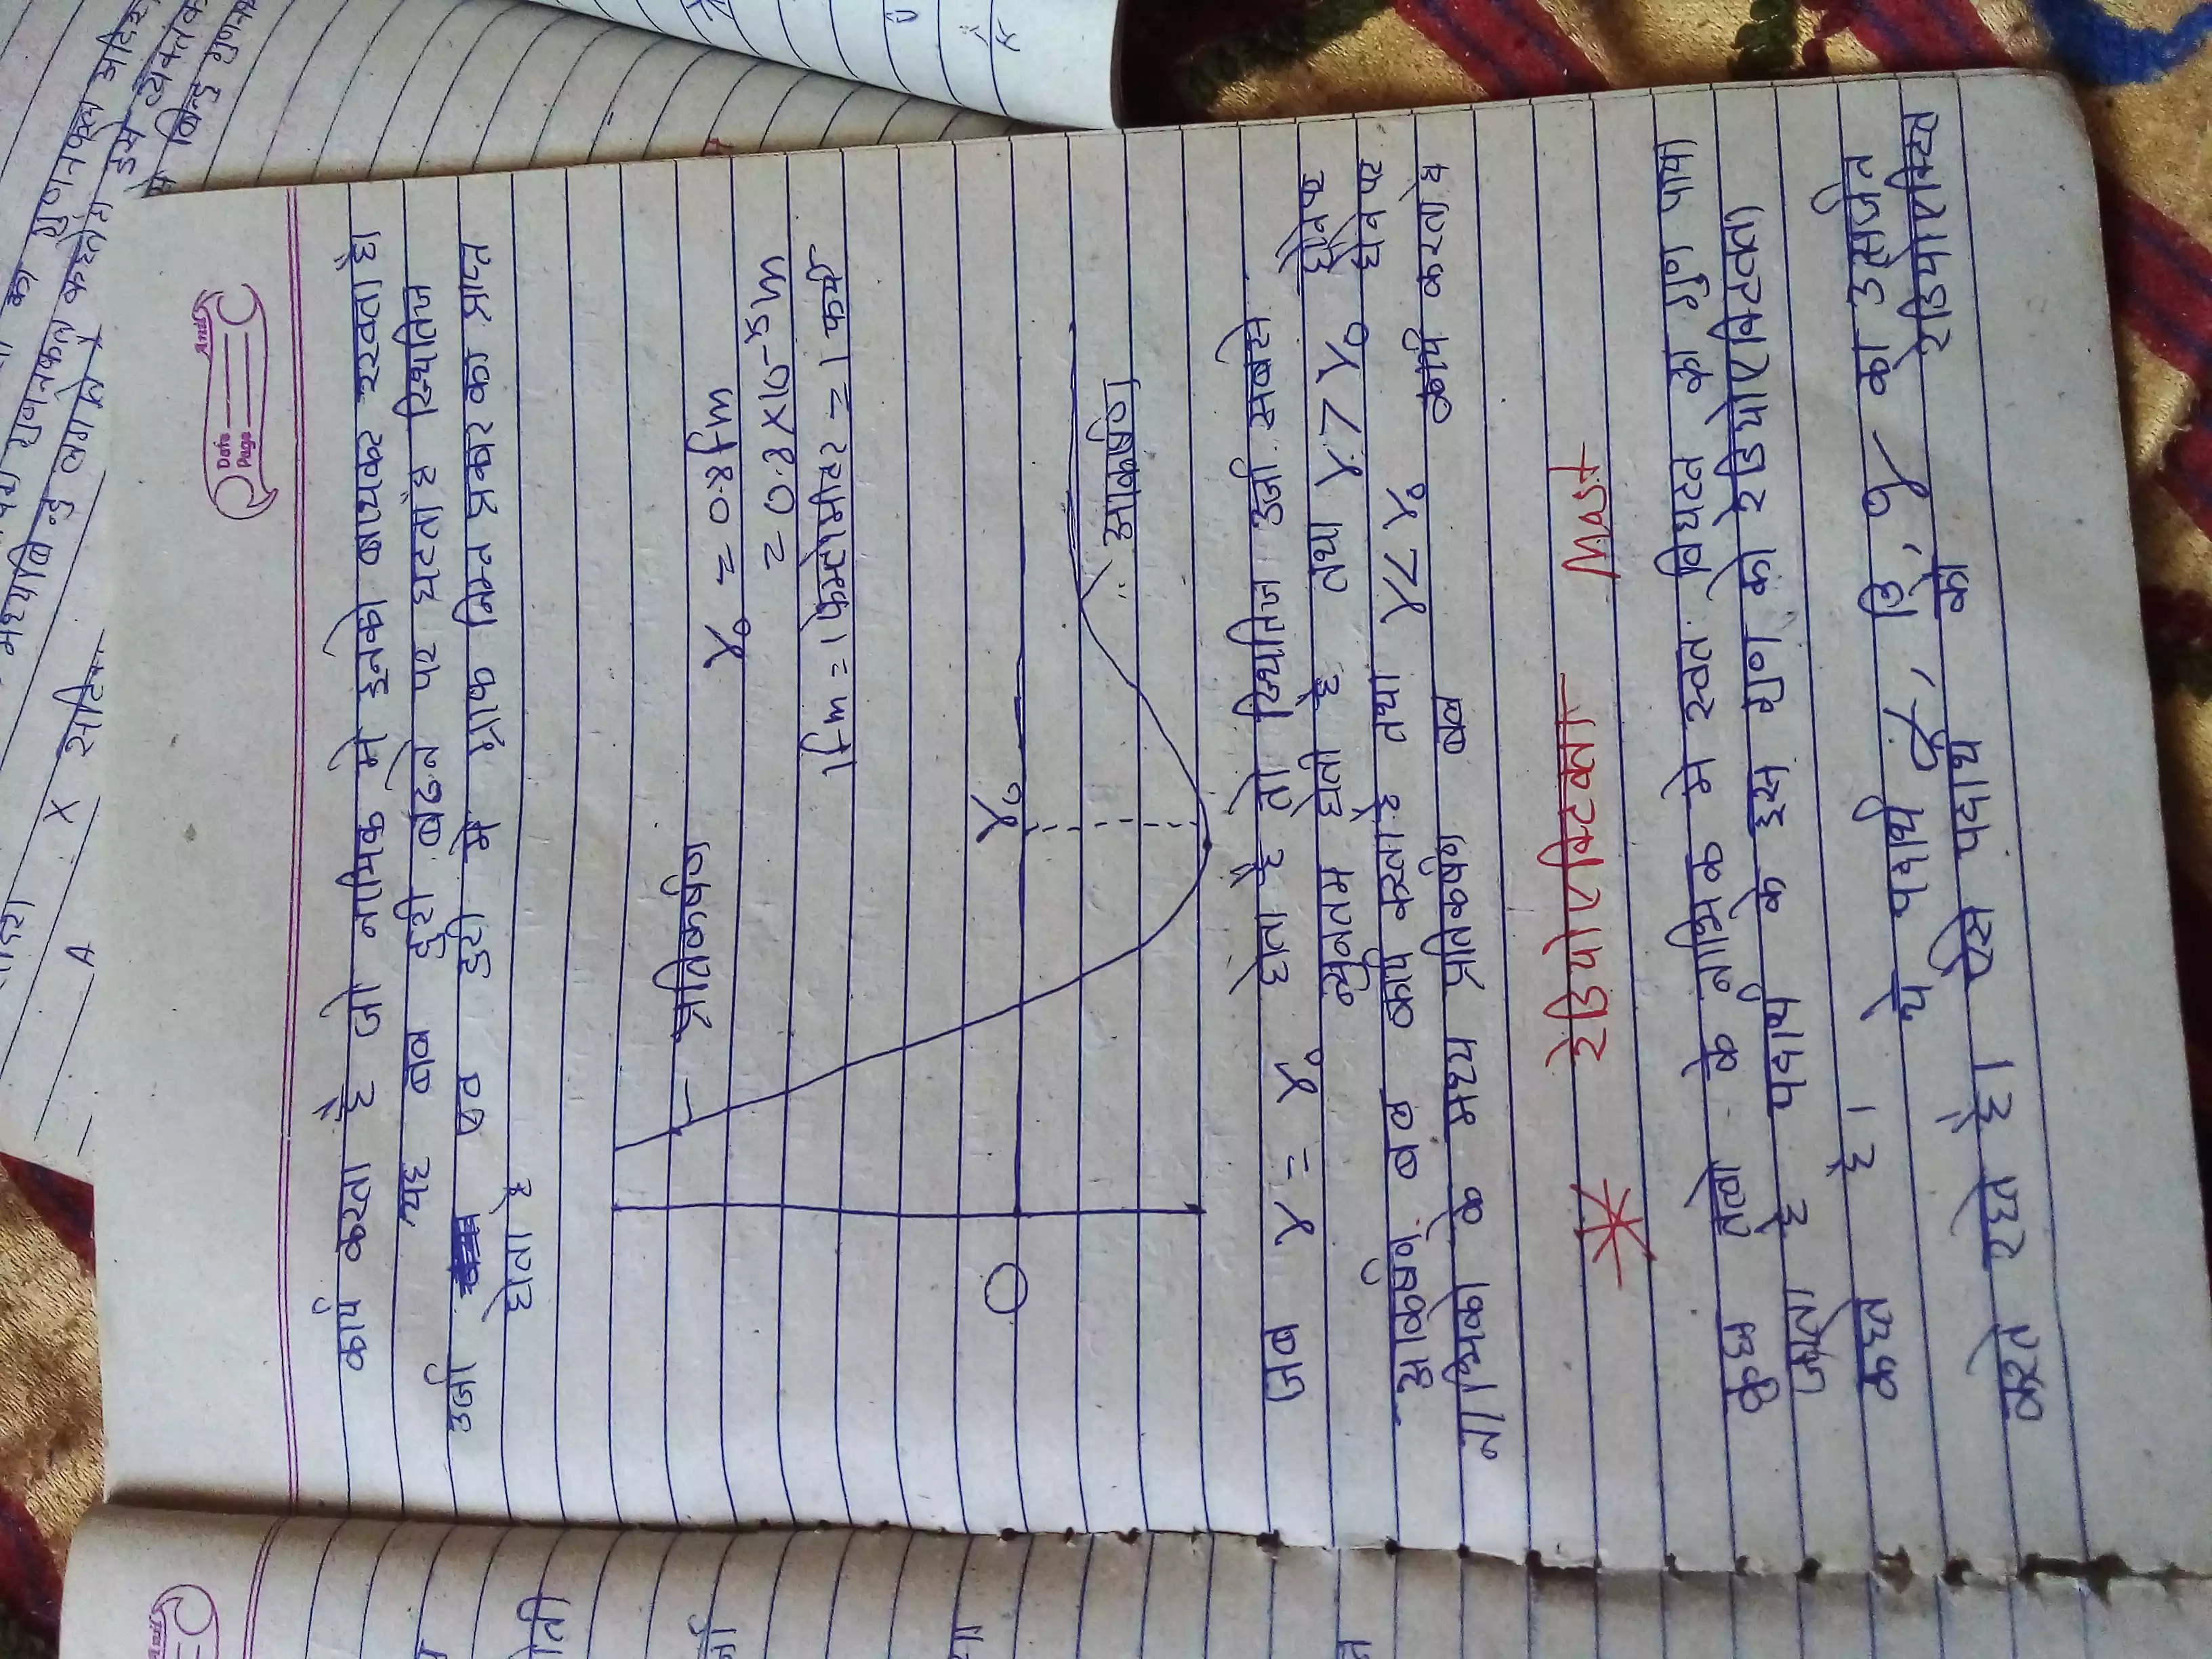 Date
Page
कार्य करता है जो नाभिक मे इनको बाधकर रखता है।
यह बल दुरी बढने पर घटता है स्थितिज
उर्जा एव दुरी मे ग्राफ निम्न प्रकार का प्राप्त
होता है
प्रतिकर्षण
r₀ = 0.8 fm
= 0.8×10⁻¹⁵m
1fm = 1 फेम्टोमीटर = 1 फर्मी
r₀
O
आकर्षण
जब r = r₀ होता है तो स्थितिज उर्जा सबसे
न्युनतम होती है तथा r > r₀ होनेपर
आकर्षण बल कार्य करता है तथा r < r₀ होनेपर
नाभिको के मध्य प्रतिकर्षण बल कार्य करता है
रेडियोएक्टिवता Most
कुछ तत्वो के नाभिक मे स्वत विघटन का गुण पाया
जाता है पदार्थ के इस गुण को रेडियोएक्टिवता
कहते है।
ये पदार्थ α, β, γ का उत्सर्जन
करते रहते है। ऐसे पदार्थ को रेडियोएक्टिव